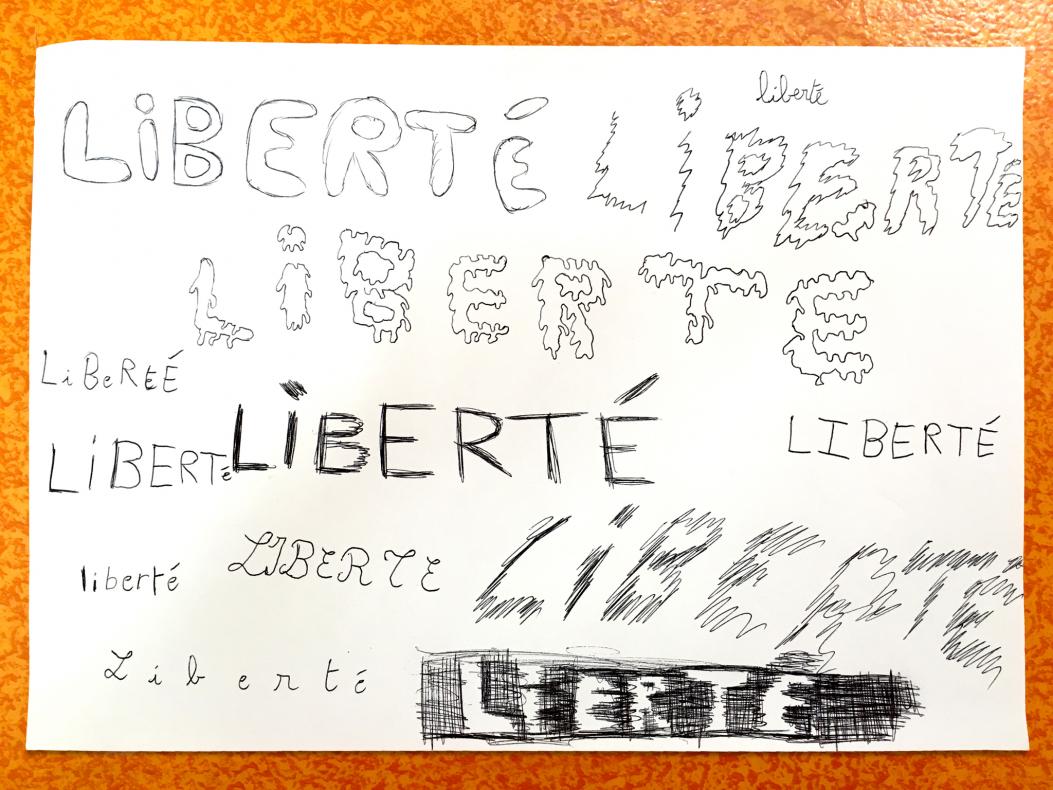 liberté
LiBERTÉ LiBERTÉ
LiBERTE
LiBeRtÉ
LiBERTÉ
LIBERTÉ
LiBERTé
LIBERTE
LiBERTE
liberté
Liberté
LIERTE